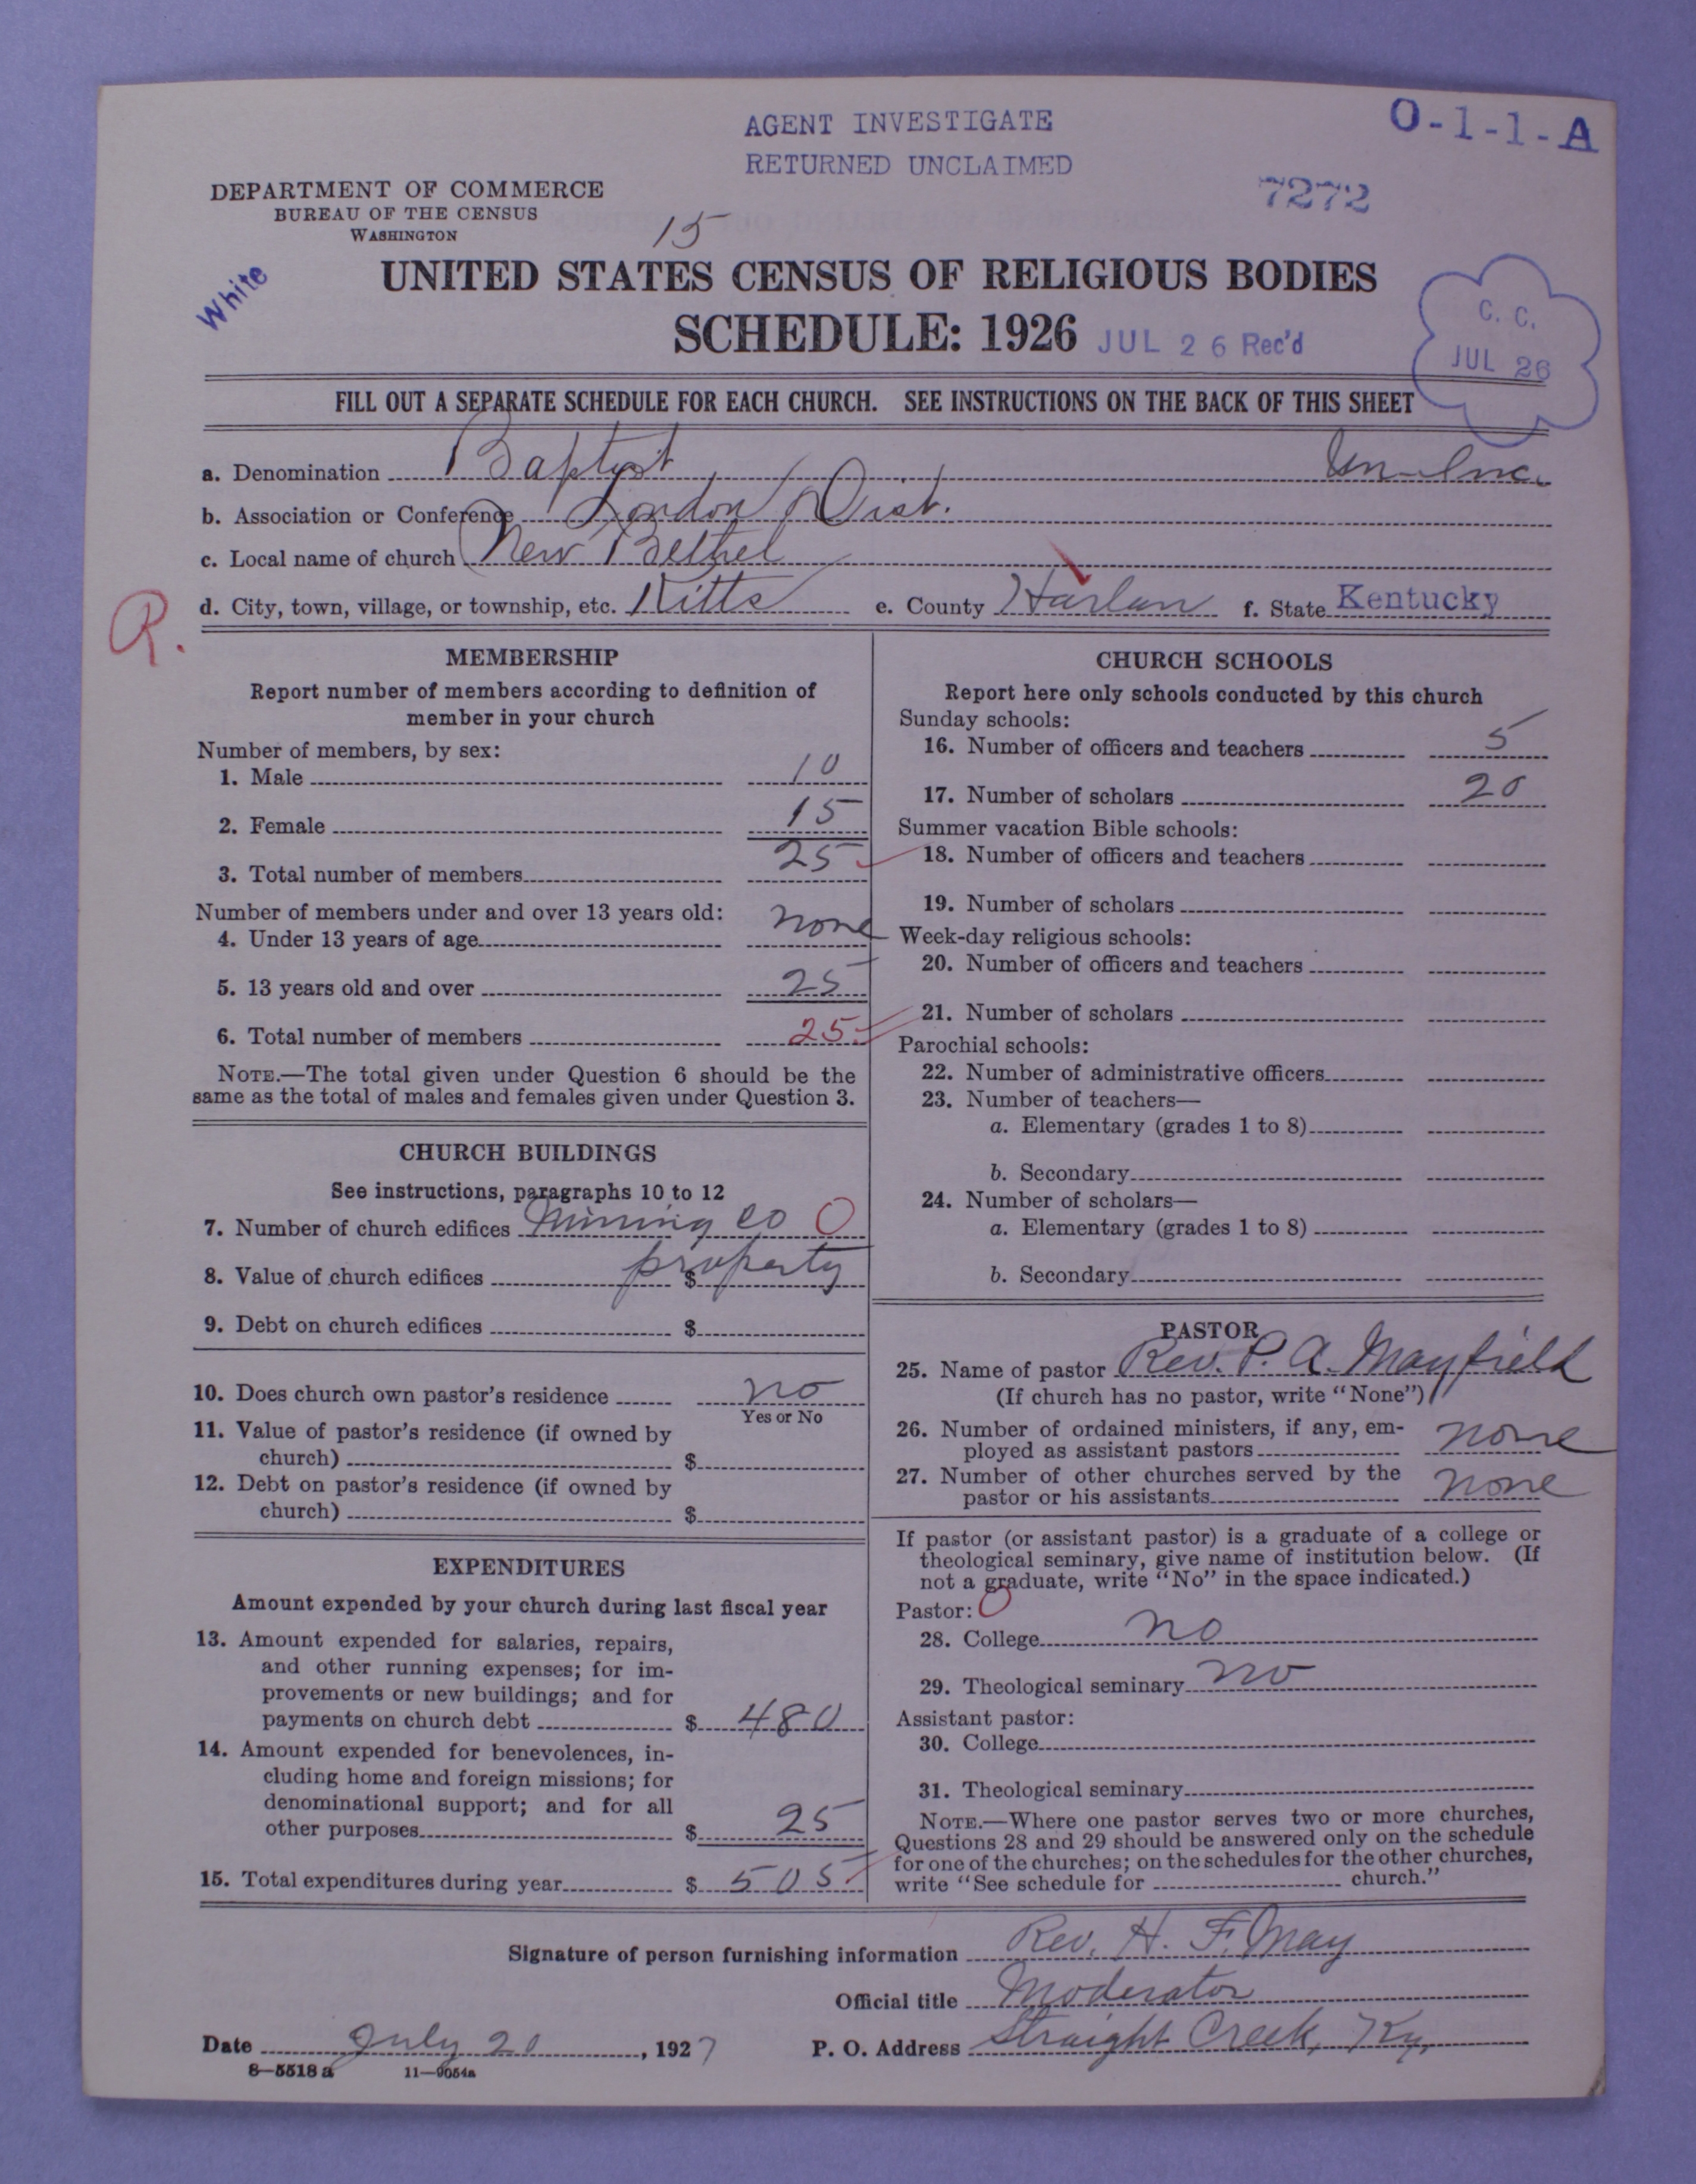 AGENT INVESTIGATE
RETURNED UNCLAIMED
O-1-1-A
7272
DEPARTMENT OF COMMERCE
BUREAU OF THE CENSUS
WASHINGTON
15
White
UNITED STATES CENSUS OF RELIGIOUS BODIES
SCHEDULE: 1926 JUL 26 Rec'd
C. C.
JUL 26
FILL OUT A SEPARATE SCHEDULE FOR EACH CHURCH. SEE INSTRUCTIONS ON THE BACK OF THIS SHEET
a. Denomination Baptist Un-Inc.
b. Association or Conference London Dist.
c. Local name of church New Bethel
d. City, town, village, or township, etc. Kitts e. County Harlan f. State Kentucky
R.
MEMBERSHIP
Report number of members according to definition of
member in your church
Number of members, by sex:
1. Male 10
2. Female 15
3. Total number of members 25
Number of members under and over 13 years old:
4. Under 13 years of age none
5. 13 years old and over 25
6. Total number of members 25
NOTE.—The total given under Question 6 should be the
same as the total of males and females given under Question 3.
CHURCH BUILDINGS
See instructions, paragraphs 10 to 12
7. Number of church edifices Mining co 0
8. Value of church edifices $ property
9. Debt on church edifices $
10. Does church own pastor's residence no
Yes or No
11. Value of pastor's residence (if owned by
church) $
12. Debt on pastor's residence (if owned by
church) $
EXPENDITURES
Amount expended by your church during last fiscal year
13. Amount expended for salaries, repairs,
and other running expenses; for im-
provements or new buildings; and for
payments on church debt $ 480
14. Amount expended for benevolences, in-
cluding home and foreign missions; for
denominational support; and for all
other purposes $ 25
15. Total expenditures during year $ 505
CHURCH SCHOOLS
Report here only schools conducted by this church
Sunday schools:
16. Number of officers and teachers 5
17. Number of scholars 20
Summer vacation Bible schools:
18. Number of officers and teachers
19. Number of scholars
Week-day religious schools:
20. Number of officers and teachers
21. Number of scholars
Parochial schools:
22. Number of administrative officers
23. Number of teachers—
a. Elementary (grades 1 to 8)
b. Secondary
24. Number of scholars—
a. Elementary (grades 1 to 8)
b. Secondary
PASTOR
25. Name of pastor Rev. P. A. Mayfield
(If church has no pastor, write "None")
26. Number of ordained ministers, if any, em-
ployed as assistant pastors none
27. Number of other churches served by the
pastor or his assistants none
If pastor (or assistant pastor) is a graduate of a college or
theological seminary, give name of institution below. (If
not a graduate, write "No" in the space indicated.)
Pastor: 0
28. College no
29. Theological seminary no
Assistant pastor:
30. College
31. Theological seminary
NOTE.—Where one pastor serves two or more churches,
Questions 28 and 29 should be answered only on the schedule
for one of the churches; on the schedules for the other churches,
write "See schedule for church."
Signature of person furnishing information Rev. H. F. May
Official title Moderator
Date July 20, 1927 P. O. Address Straight Creek, Ky.
8—5518 a 11—9054a